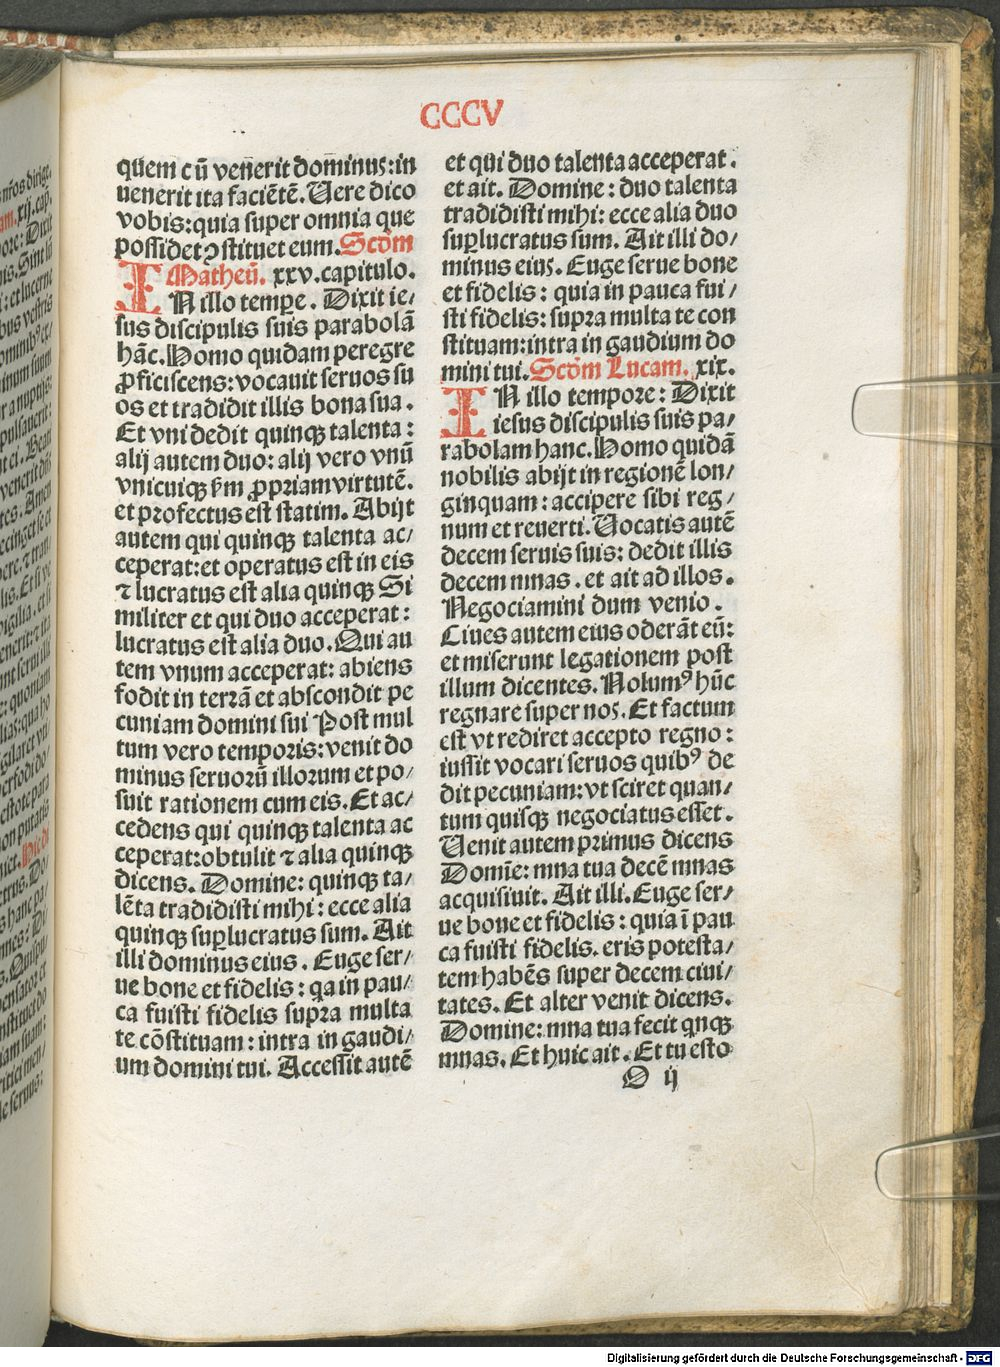 CCCV
quem cū venerit dominus:in
uenerit ita faciētē. Uere dico
vobis:quia super omnia que
possidet ꝯstituet eum. Scd̄m
Matheū. xxv. capitulo.
IN illo tempe. Dixit ie/
sus discipulis suis parabolā
hāc. Homo quidam peregre
ꝓficiscens: vocauit seruos su
os et tradidit illis bona sua.
Et vni dedit quinqꝫ talenta:
alij autem duo: alij vero vnū
vnicuiqꝫ ẜm ꝓpriam virtutē.
et profectus est statim. Abijt
autem qui quinqꝫ talenta ac/
ceperat: et operatus est in eis
⁊ lucratus est alia quinqꝫ Si
militer et qui duo acceperat:
lucratus est alia duo. Qui au
tem vnum acceperat: abiens
fodit in terrā et abscondit pe
cuniam domini sui Post mul
tum vero temporis: venit do
minus seruorū illorum et po/
suit rationem cum eis. Et ac/
cedens qui quinqꝫ talenta ac
ceperat: obtulit ⁊ alia quinqꝫ
dicens. Domine: quinqꝫ ta/
lēta tradidisti mihi: ecce alia
quinqꝫ suꝑlucratus sum. Ait
illi dominus eius. Euge ser/
ue bone et fidelis: qa in pau/
ca fuisti fidelis supra multa
te cōstituam: intra in gaudi/
um domini tui. Accessit autē
et qui duo talenta acceperat.
et ait. Domine: duo talenta
tradidisti mihi: ecce alia duo
suꝑlucratus sum. Ait illi do/
minus eius. Euge serue bone
et fidelis: quia in pauca fui/
sti fidelis: supra multa te con
stituam: intra in gaudium do
mini tui. Scd̄m Lucam. xix.
IN illo tempore: Dixit
iesus discipulis suis pa/
rabolam hanc. Homo quidā
nobilis abijt in regionē lon/
ginquam: accipere sibi reg/
num et reuerti. Uocatis autē
decem seruis suis: dedit illis
decem mnas. et ait ad illos.
Negociamini dum venio.
Ciues autem eius oderāt eū:
et miserunt legationem post
illum dicentes. Nolumꝰ hūc
regnare super nos. Et factum
est vt rediret accepto regno:
iussit vocari seruos quibꝰ de
dit pecuniam: vt sciret quan/
tum quisqꝫ negociatus esset.
Uenit autem primus dicens
Domīe: mna tua decē mnas
acquisiuit. Ait illi. Euge ser/
ue bone et fidelis: quia ī pau
ca fuisti fidelis. eris potesta/
tem habēs super decem ciui/
tates. Et alter venit dicens.
Domine: mna tua fecit qnqꝫ
mnas. Et huic ait. Et tu esto
O ij
Digitalisierung gefördert durch die Deutsche Forschungsgemeinschaft - DFG